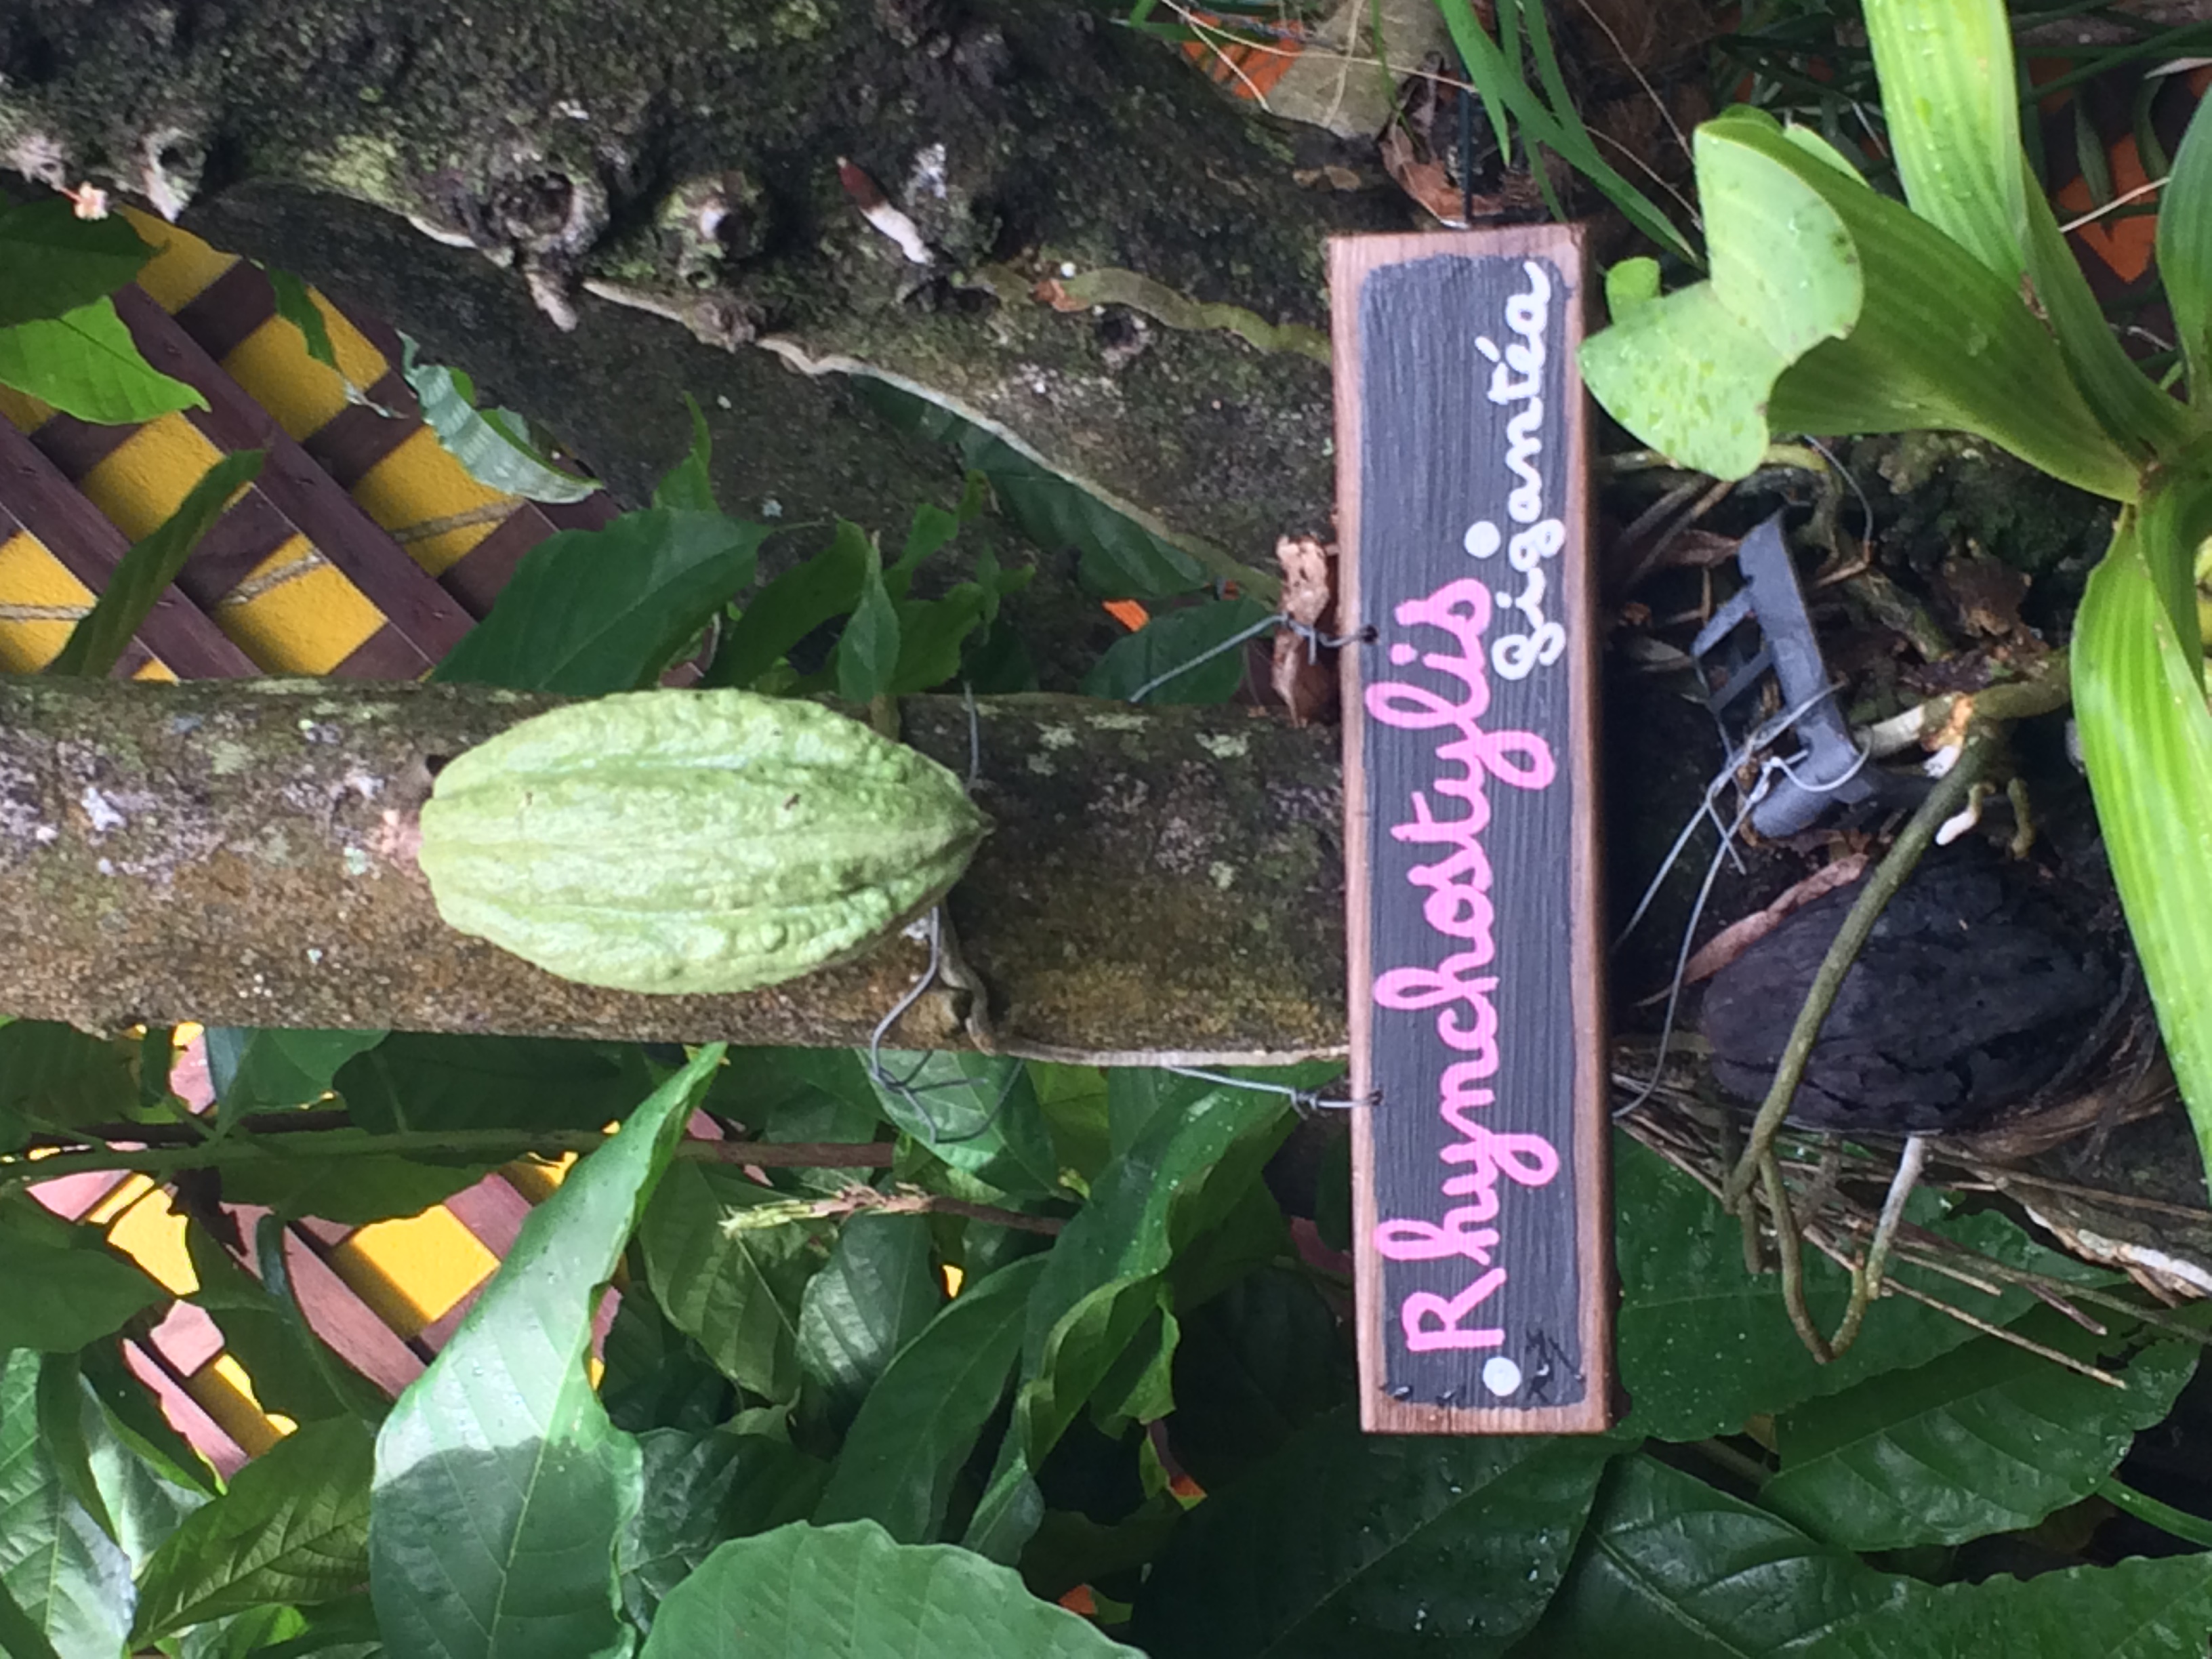 Rhynchostylis
Gigantéa